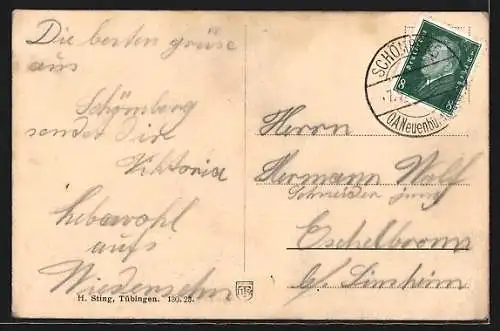 Die besten grüse
aus
Schömberg
sendet Dir
Viktoria
Lebewohl
aufs
Wiedersehn
H. Sting, Tübingen. 130.28.
SCHÖMB
8 8
OANeuenbü
Herrn
Hermann Wolf
Schneider jung
Eschelbronn
b/ Sinsheim